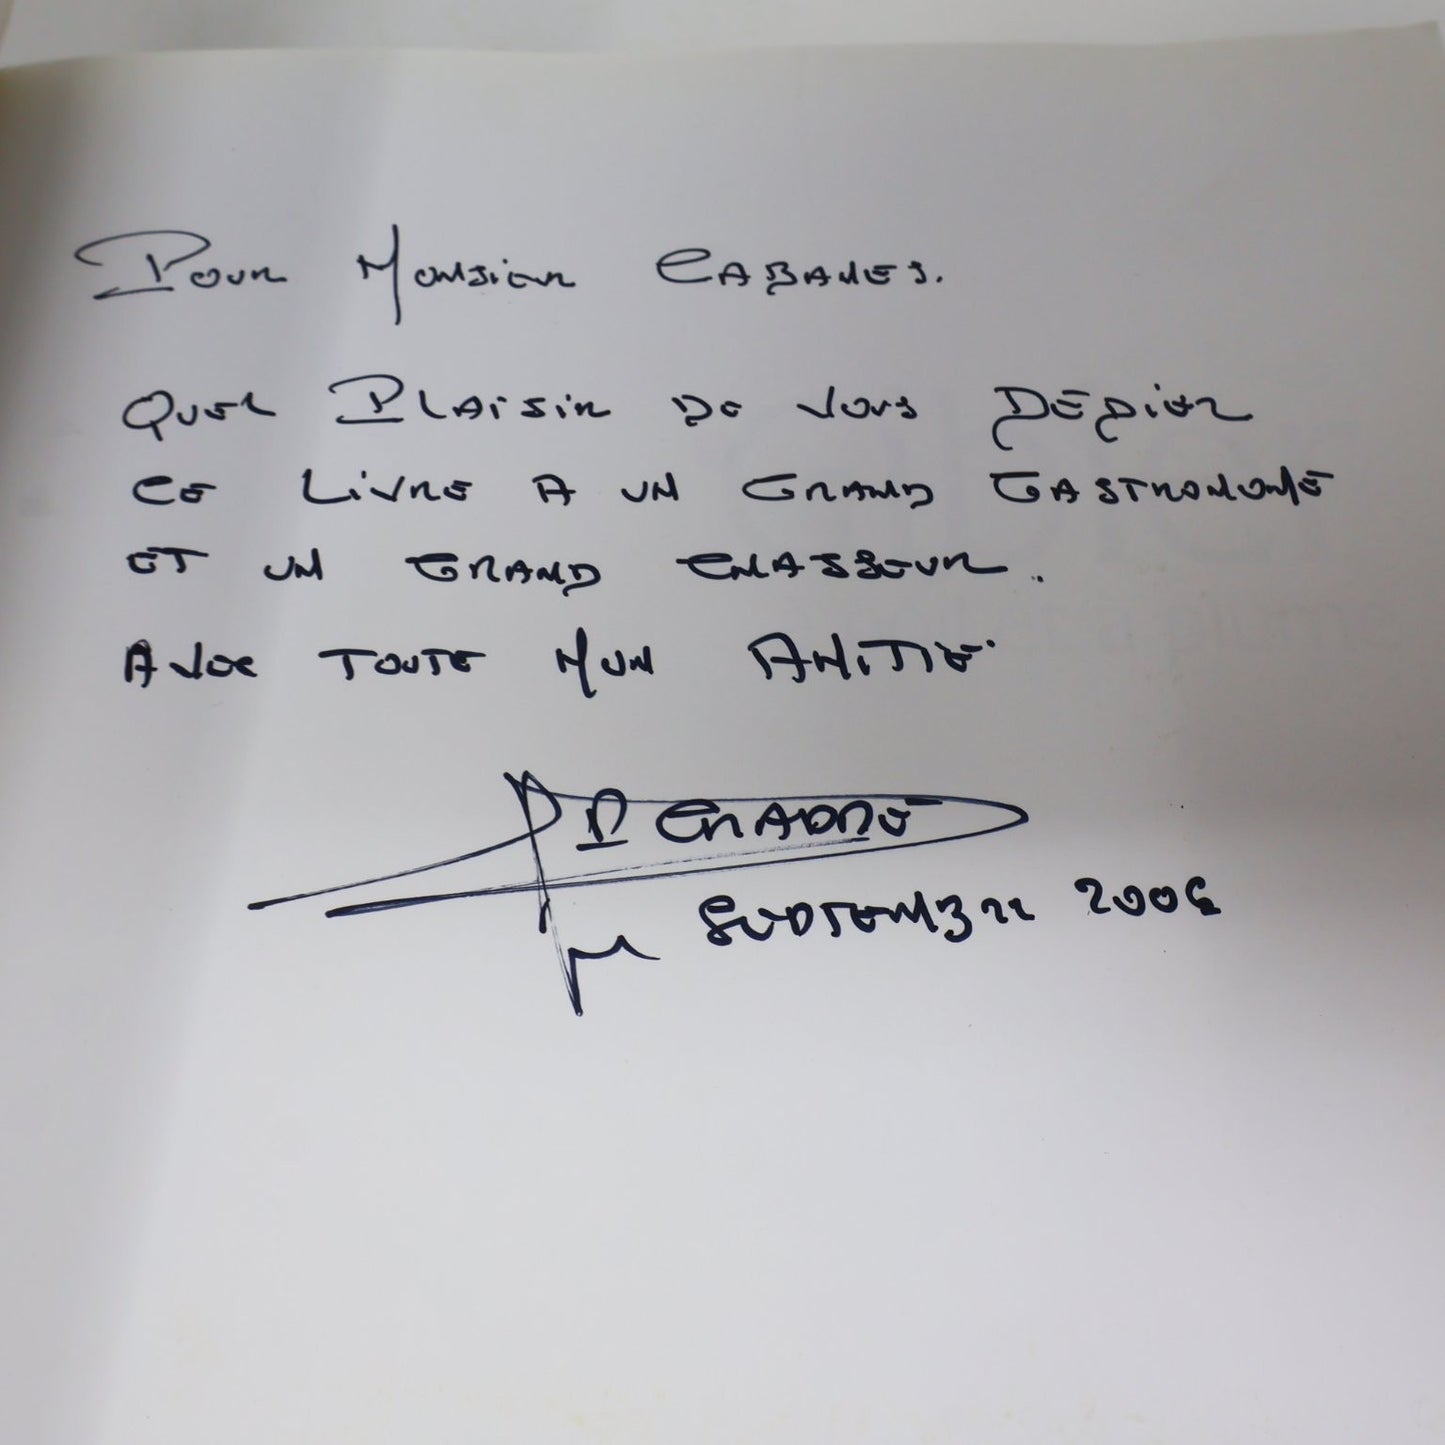 Pour Monsieur CABANES.
QUEL PLAISIR DE VOUS DÉDIER
CE LIVRE A UN GRAND GASTRONOME
ET UN GRAND CHASSEUR.
AVEC TOUTE MON AMITIÉ.
SEPTEMBRE 2006